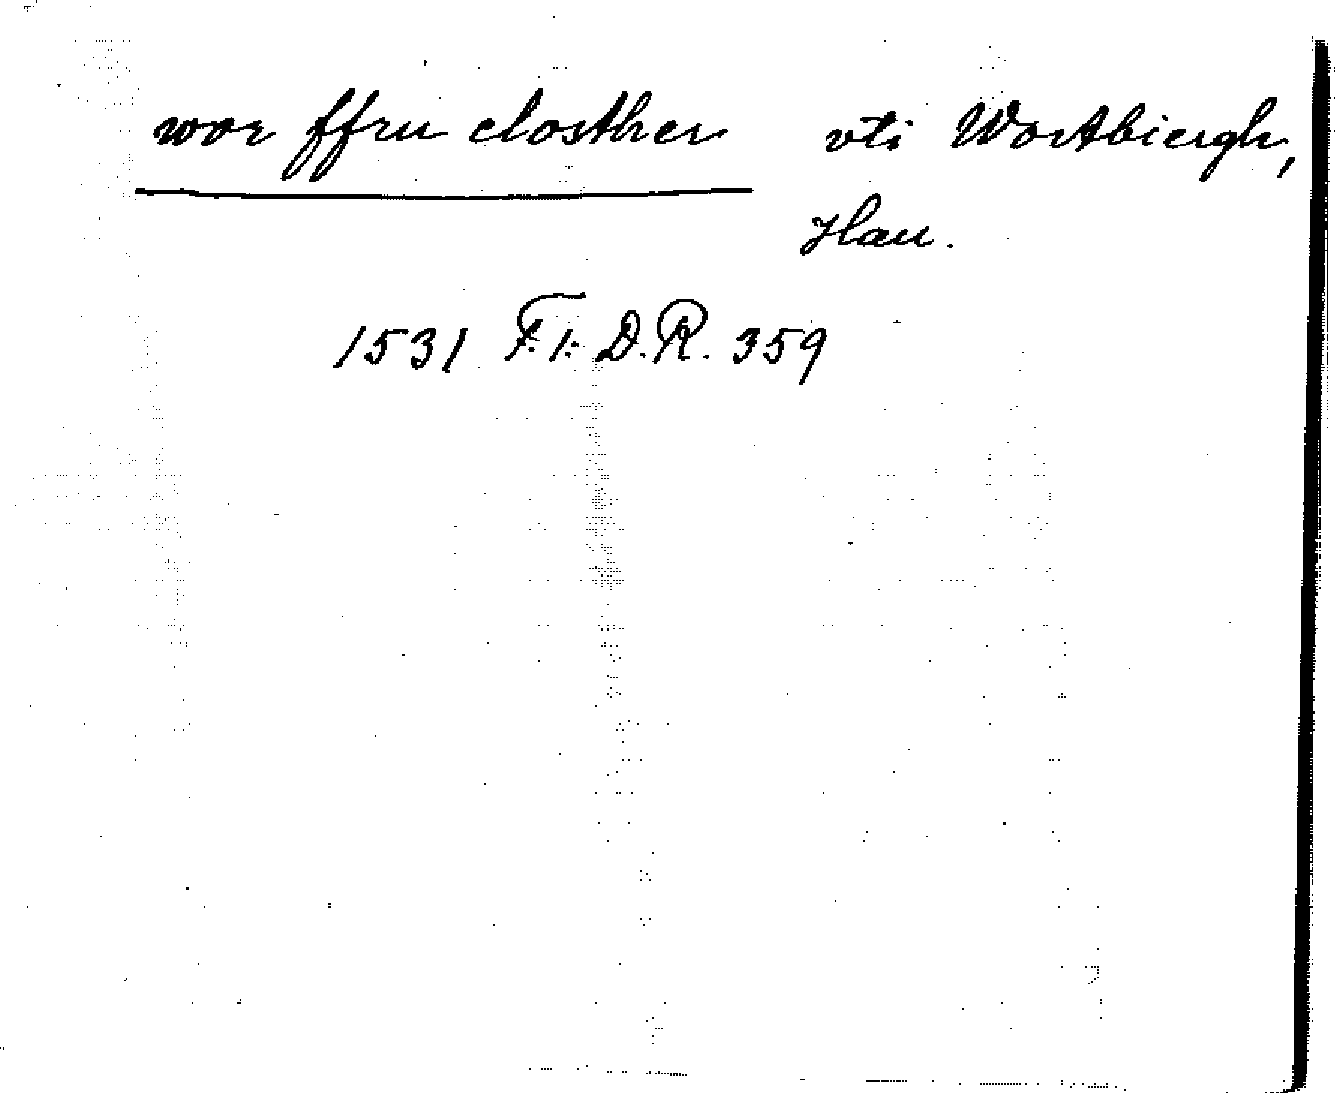 wor ffru closther vti Wortbiergh,
Han.
1531 F.1: D.R. 359